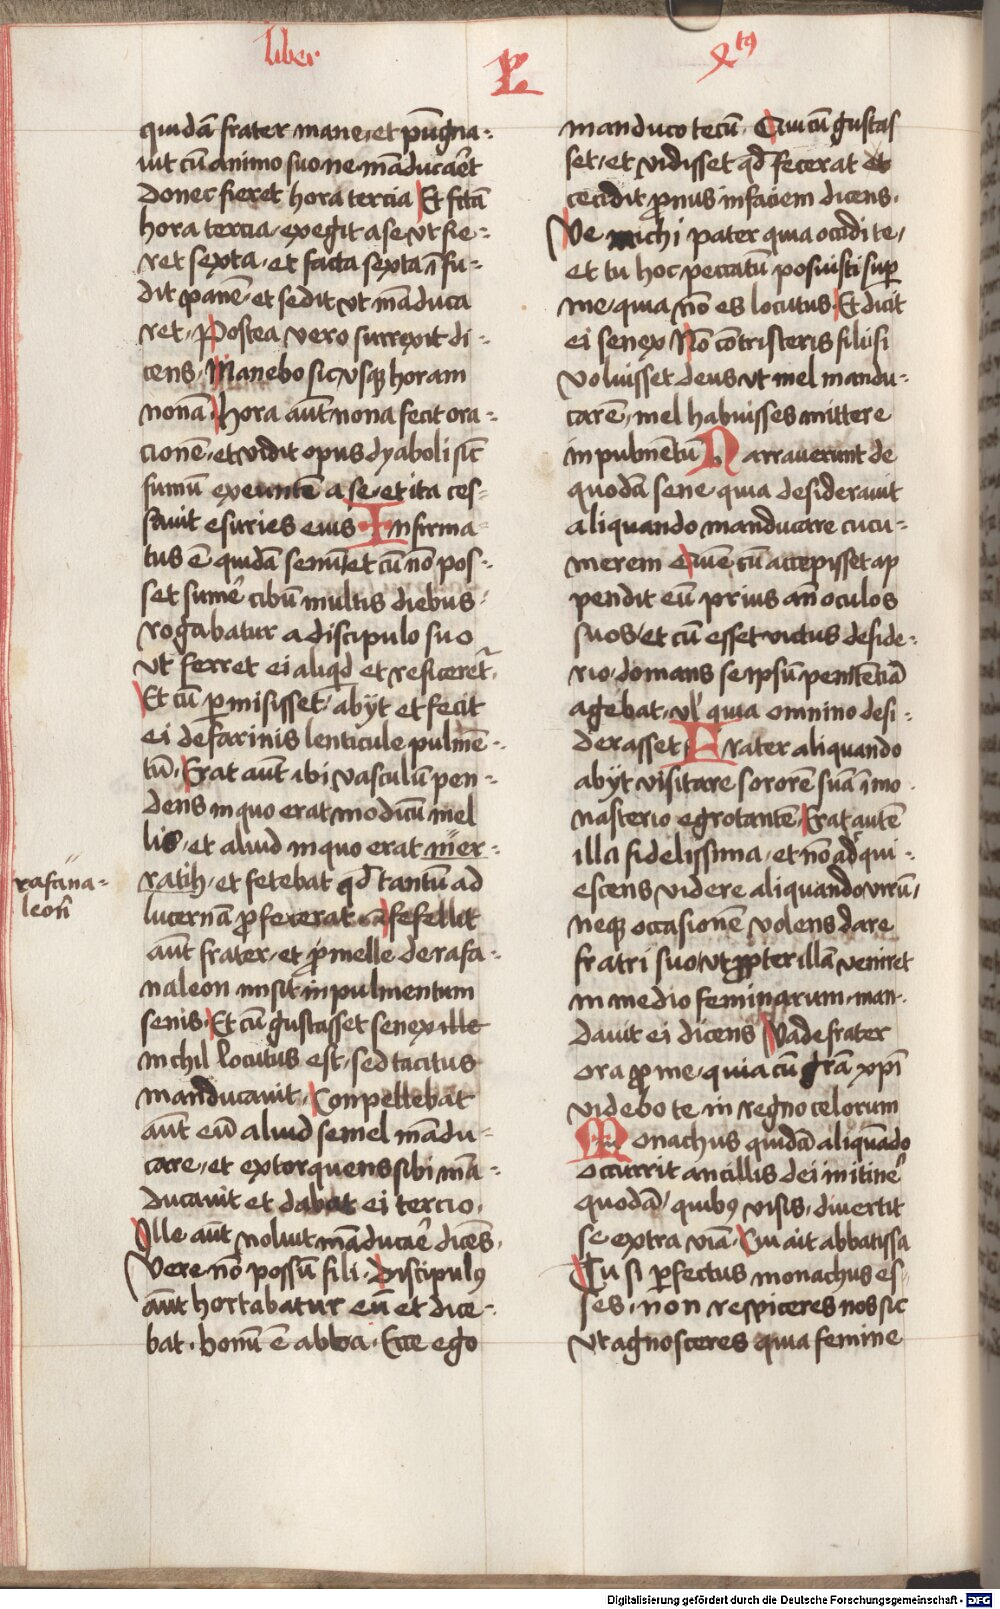 liber
P
xtꝯ
quidā frater mane et pūgna-
uit cū animo suo ne māducaret
donec fieret hora tercia Et fctā
hora tercia exegit a se vt fie-
ret sexta et facta sexta ī fu-
dit panē et sedit vt māduca
ret Postea vero surrexit di-
cens Manebo sic vsqꝫ horam
nonā Hora aūt nona fecit ora-
cionē et vidit opus dyaboli sic̄
fumū exeuntē a se et ita ces-
sauit esuries eius Infirma-
tus ē quidā senū et cū nō pos-
set sumē cibū multis diebus
rogabatur a discipulo suo
vt ferret ei aliqd et reficeret̄
Et cū pmisisset abijt et fecit
ei de farinis lenticule pulmē-
tū Erat aūt ibi vasculū pen-
dens in quo erat modicū mel
lis et aliud in quo erat mer-
ratih et fetebat qđ tantū ad
lucernā ꝓfecerat fefellit
aūt frater et ꝓ melle de rafa-
naleon misit in pulmentum
senis Et cū gustasset senex ille
nichil locutus est sed tacitus
manducauit Conpellebat
aūt eū aliud semel mādu-
care et extorquens sibi mā-
ducauit et dabat ei tercio
Ille aūt noluit māducaē dicēs
Vere nō possū fili Discipulꝰ
aūt hortabatur eū et dice-
bat bonū ē abba Ecce ego
rafana-
leoñ
manduco tecū Qui cū gustas
set et vidisset qđ fecerat
cecidit ꝓnus in faciem dicens
Ve michi pater quia occidi te
et tu hoc peccatū posuisti sup
me quia nō es locutus Et dicit
ei senex Nō cōtristeris fili si
voluisset deus vt mel mandu-
carē mel habuisses mittere
in pulmētū Narrauerunt de
quodā sene quia desiderauit
aliquando manducare cucu-
merem Quē cū accepisset ap
pendit eū prius añ oculos
suos et cū esset victus deside-
rio domans se ipsū penitēciā
agebat vl' quia omnino desi-
derasset Frater aliquando
abijt visitare sororē suā ī mo-
nasterio egrotantē Erat autē
illa fidelissima et nō adqui-
escens videre aliquando virū
neqꝫ occasionē volens dare
fratri suo vt ꝓpter illā veniret
in medio feminarum man-
dauit ei dicens Vade frater
ora ꝓ me quia cū grā xp̄i
videbo te in regno celorum
Monachus quidā aliquādo
occurrit ancillis dei in itinē
quodā quibꝰ visis diuertit
se extra viā Cui ait abbatissa
Tu si pfectus monachus es-
ses non respiceres nos sic
vt agnosceres quia femine
Digitalisierung gefördert durch die Deutsche Forschungsgemeinschaft - DFG